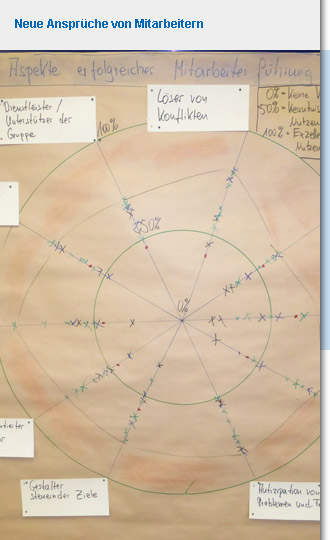 Neue Ansprüche von Mitarbeitern
Aspekte erfolgreicher Mitarbeiterführung
Dienstleister /
Unterstützer der
Gruppe
Löser von
Konflikten
0% = Keine
50% = Kenntnis
Nutzen
100% = Exze
Nutzen
100%
50%
0%
Gestalter
sinnvoller Ziele
Antizipation von
Problemen und